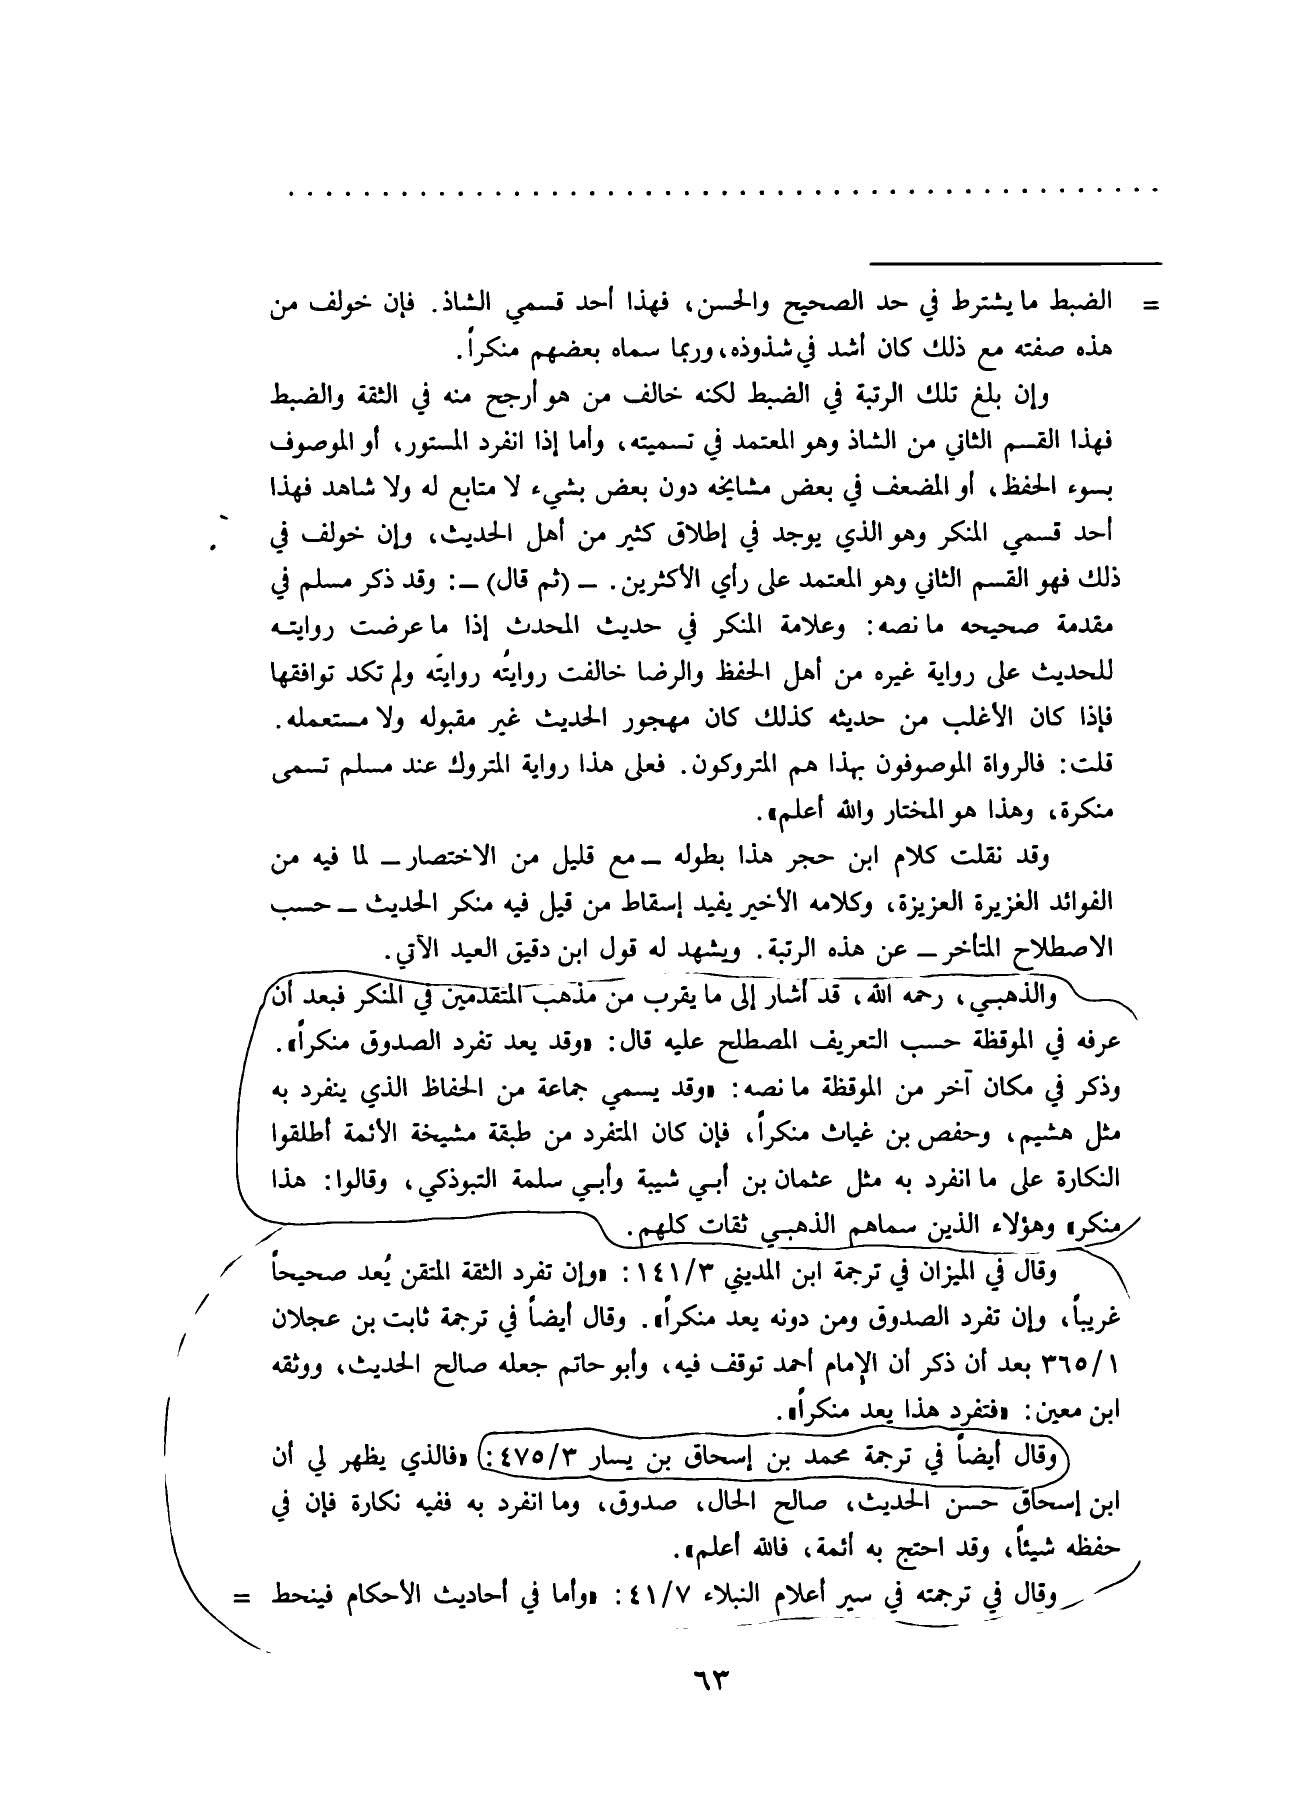 = الضبط ما يشترط في حد الصحيح والحسن، فهذا أحد قسمي الشاذ. فإن خولف من
هذه صفته مع ذلك كان أشد في شذوذه، وربما سماه بعضهم منكراً.
وإن بلغ تلك الرتبة في الضبط لكنه خالف من هو أرجح منه في الثقة والضبط
فهذا القسم الثاني من الشاذ وهو المعتمد في تسميته، وأما إذا انفرد المستور، أو الموصوف
بسوء الحفظ، أو المضعف في بعض مشايخه دون بعض بشيء لا متابع له ولا شاهد فهذا
أحد قسمي المنكر وهو الذي يوجد في إطلاق كثير من أهل الحديث، وإن خولف في
ذلك فهو القسم الثاني وهو المعتمد على رأي الأكثرين. ــ (ثم قال) ــ: وقد ذكر مسلم في
مقدمة صحيحه ما نصه: وعلامة المنكر في حديث المحدث إذا ما عرضت روايته
للحديث على رواية غيره من أهل الحفظ والرضا خالفت روايتُه روايتَه ولم تكد توافقها
فإذا كان الأغلب من حديثه كذلك كان مهجور الحديث غير مقبوله ولا مستعمله.
قلت: فالرواة الموصوفون بهذا هم المتروكون. فعلى هذا رواية المتروك عند مسلم تسمى
منكرة، وهذا هو المختار والله أعلم».
وقد نقلت كلام ابن حجر هذا بطوله ــ مع قليل من الاختصار ــ لما فيه من
الفوائد الغزيرة العزيزة، وكلامه الأخير يفيد إسقاط من قيل فيه منكر الحديث ــ حسب
الاصطلاح المتأخر ــ عن هذه الرتبة. ويشهد له قول ابن دقيق العيد الآتي.
والذهبي، رحمه الله، قد أشار إلى ما يقرب من مذهب المتقدمين في المنكر فبعد أن
عرفه في الموقظة حسب التعريف المصطلح عليه قال: «وقد يعد تفرد الصدوق منكراً».
وذكر في مكان آخر من الموقظة ما نصه: «وقد يسمي جماعة من الحفاظ الذي ينفرد به
مثل هشيم، وحفص بن غياث منكراً، فإن كان المتفرد من طبقة مشيخة الأئمة أطلقوا
النكارة على ما انفرد به مثل عثمان بن أبي شيبة وأبي سلمة التبوذكي، وقالوا: هذا
منكر» وهؤلاء الذين سماهم الذهبي ثقات كلهم.
وقال في الميزان في ترجمة ابن المديني ١٤١/٣: «وإن تفرد الثقة المتقن يُعد صحيحاً
غريباً، وإن تفرد الصدوق ومن دونه يعد منكراً». وقال أيضاً في ترجمة ثابت بن عجلان
٣٦٥/١ بعد أن ذكر أن الإمام أحمد توقف فيه، وأبو حاتم جعله صالح الحديث، ووثقه
ابن معين: «فتفرد هذا يعد منكراً».
وقال أيضاً في ترجمة محمد بن إسحاق بن يسار ٤٧٥/٣: «فالذي يظهر لي أن
ابن إسحاق حسن الحديث، صالح الحال، صدوق، وما انفرد به ففيه نكارة فإن في
حفظه شيئاً، وقد احتج به أئمة، فالله أعلم».
وقال في ترجمته في سير أعلام النبلاء ٤١/٧: «وأما في أحاديث الأحكام فينحط =
٦٣